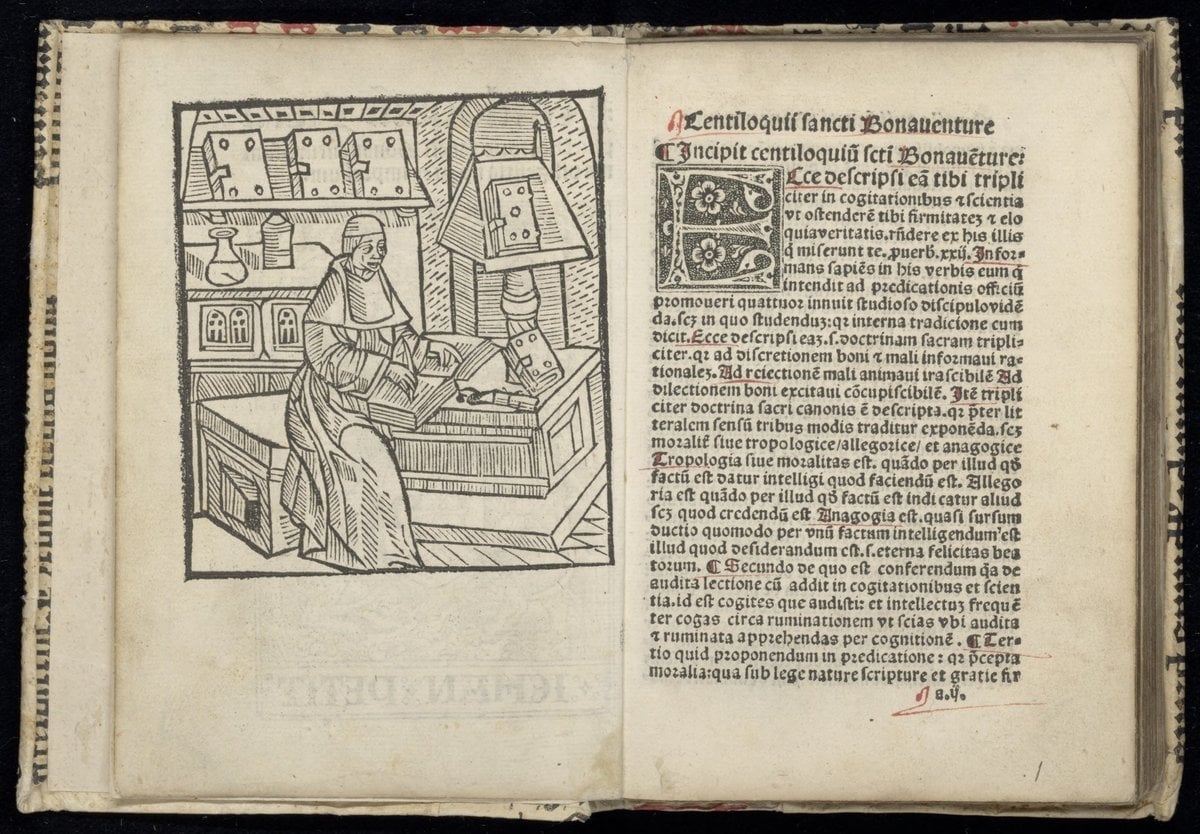 Centiloquii sancti Bonauenture
¶ Incipit centiloquiũ scti Bonauẽture:
ECce descripsi eã tibi tripli
citer in cogitationibus ⁊ scientia
vt ostenderẽ tibi firmitatez ⁊ elo
quiaveritatis.rñdere ex his illis
q̃ miserunt te.ꝓuerb.xxij. Infor-
mans sapiẽs in his verbis eum q̃
intendit ad predicationis officiũ
promoueri quattuor innuit studioso discipulovidẽ
da.scz in quo studenduz:qr interna tradicione cum
dicit.Ecce descripsi eaz.s.doctrinam sacram tripli-
citer.qr ad discretionem boni ⁊ mali informaui ra-
tionalez.Ad reiectionẽ mali animaui irascibilẽ Ad
dilectionem boni excitaui cõcupiscibilẽ. Itẽ tripli
citer doctrina sacri canonis ẽ descripta.qr p̃ter lit
teralem sensũ tribus modis traditur exponẽda.scz
moralit̃ siue tropologice/allegorice/ et anagogice
Tropologia siue moralitas est. quãdo per illud qð
factũ est datur intelligi quod faciendũ est. Allego
ria est quãdo per illud qð factũ est indi catur aliud
scz quod credendũ est Anagogia est.quasi sursum
ductio quomodo per vnũ factum intelligendum est
illud quod desiderandum est.s.eterna felicitas bea
torum. ¶ Secundo de quo est conferendum q̃a de
audita lectione cũ addit in cogitationibus et scien
tia.id est cogites que audisti: et intellectuz frequẽ
ter cogas circa ruminationem vt scias vbi audita
⁊ ruminata apprehendas per cognitionẽ. ¶ Ter-
tio quid proponendum in predicatione: qr p̃cepta
moralia:qua sub lege nature scripture et gratie fir
a.ij.
1